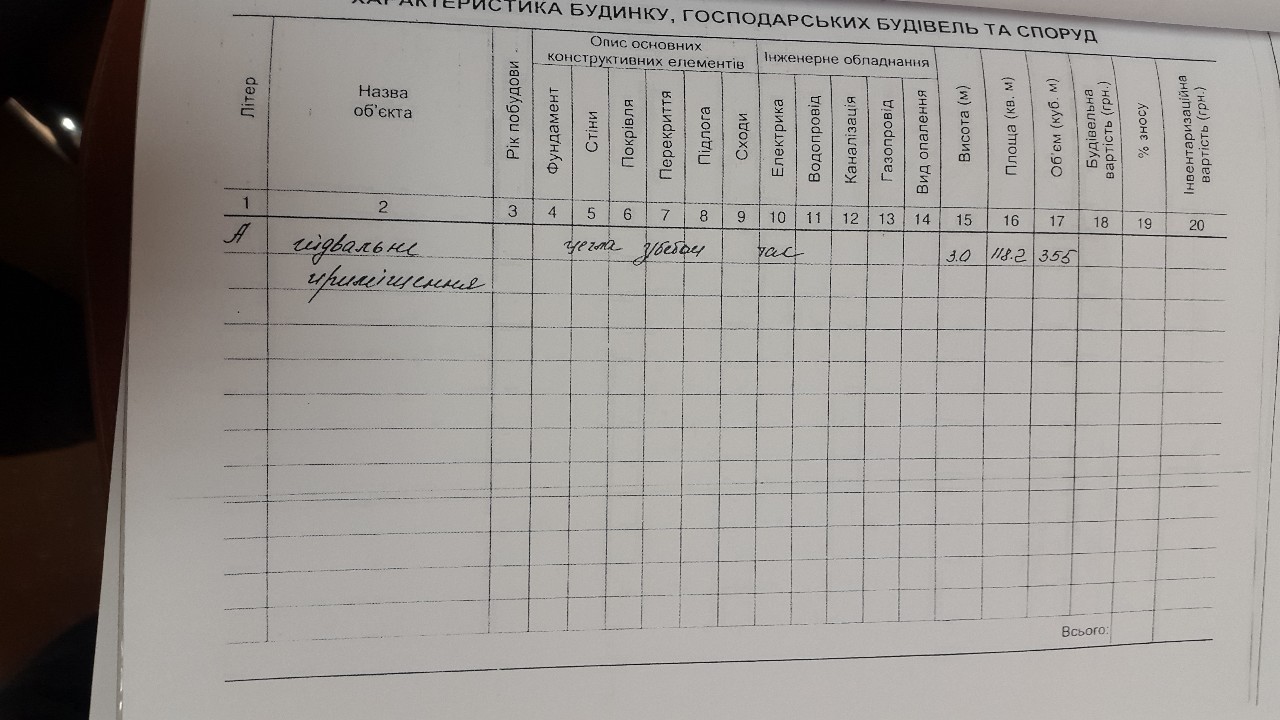 ХАРАКТЕРИСТИКА БУДИНКУ, ГОСПОДАРСЬКИХ БУДІВЕЛЬ ТА СПОРУД
Літер
Назва
об'єкта
Рік побудови
Опис основних
конструктивних елементів
Фундамент
Стіни
Покрівля
Перекриття
Підлога
Сходи
Інженерне обладнання
Електрика
Водопровід
Каналізація
Газопровід
Вид опалення
Висота (м)
Площа (кв. м)
Об'єм (куб. м)
Будівельна
вартість (грн.)
% зносу
Інвентаризаційна
вартість (грн.)
1 2 3 4 5 6 7 8 9 10 11 12 13 14 15 16 17 18 19 20
А підвальні цегла з/бетон 3.0 118.2 355
приміщення
Всього: